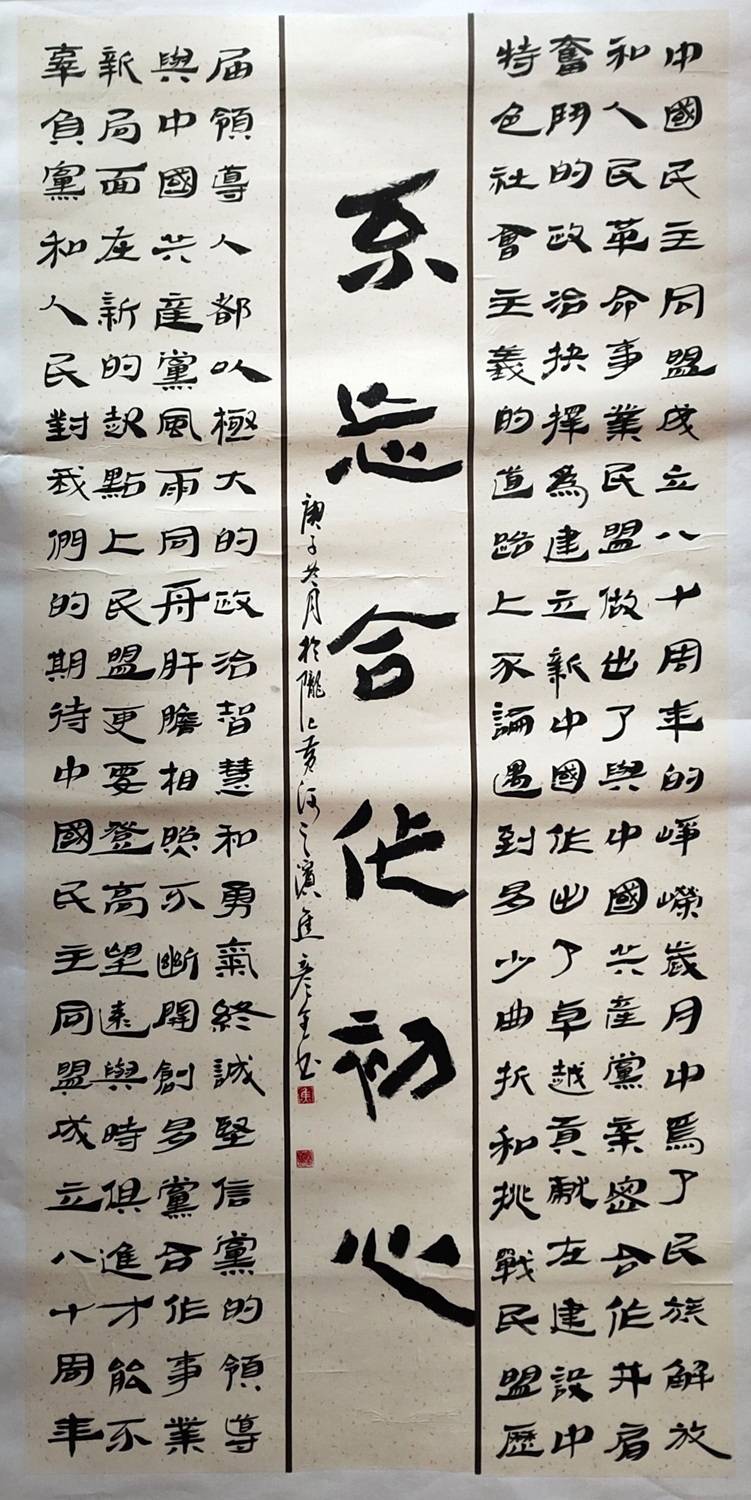 中國民主同盟成立八十周年的崢嶸歲月中爲了民族解放
和人民革命事業民盟做出了與中國共産黨亲密合作并肩
奮鬥的政治抉擇爲建立新中國作出了卓越貢献在建設中
特色社會主義的道路上不論遇到多少曲折和挑戰民盟歷
不忘合作初心
庚子冬月於隴上黄河之濱焦彦全书
届領導人都以極大的政治智慧和勇氣終誠堅信黨的領導
與中國共産黨風雨同舟肝膽相照不斷開創多黨合作事業
新局面在新的起點上民盟更要登高望遠與時俱進才能不
辜負黨和人民對我們的期待中國民主同盟成立八十周年